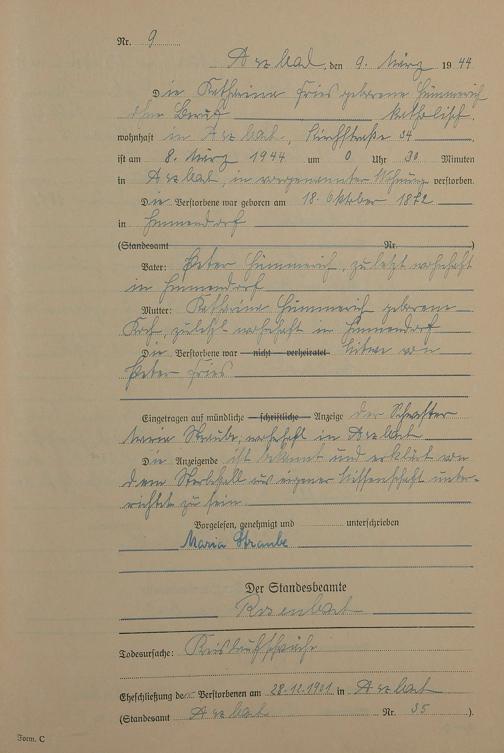 Nr. 9
Arzbach, den 9. März 1944
Die Katharina Fries geborene Hümmerich
ohne Beruf katholisch
wohnhaft in Arzbach, Kirchstraße 34
ist am 8. März 1944 um 0 Uhr 30 Minuten
in Arzbach, in vorgenannter Wohnung verstorben.
Die Verstorbene war geboren am 18. Oktober 1872
in
(Standesamt Nr. )
Vater: Peter Hümmerich, zuletzt wohnhaft
in
Mutter: Katharina Hümmerich geborene
Koch, zuletzt wohnhaft in
Die Verstorbene war nicht verheiratet Witwe von
Peter Fries
Eingetragen auf mündliche schriftliche Anzeige der Schwester
Maria Straube, wohnhaft in Arzbach
Die Anzeigende ist bekannt und erklärt von
dem Sterbefall aus eigener Wissenschaft unter-
richtet zu sein.
Vorgelesen, genehmigt und unterschrieben
Maria Straube
Der Standesbeamte
Todesursache: Kreislaufschwäche
Eheschließung der Verstorbenen am 28.12.1901 in Arzbach
(Standesamt Arzbach Nr. 35 ).
Form. C